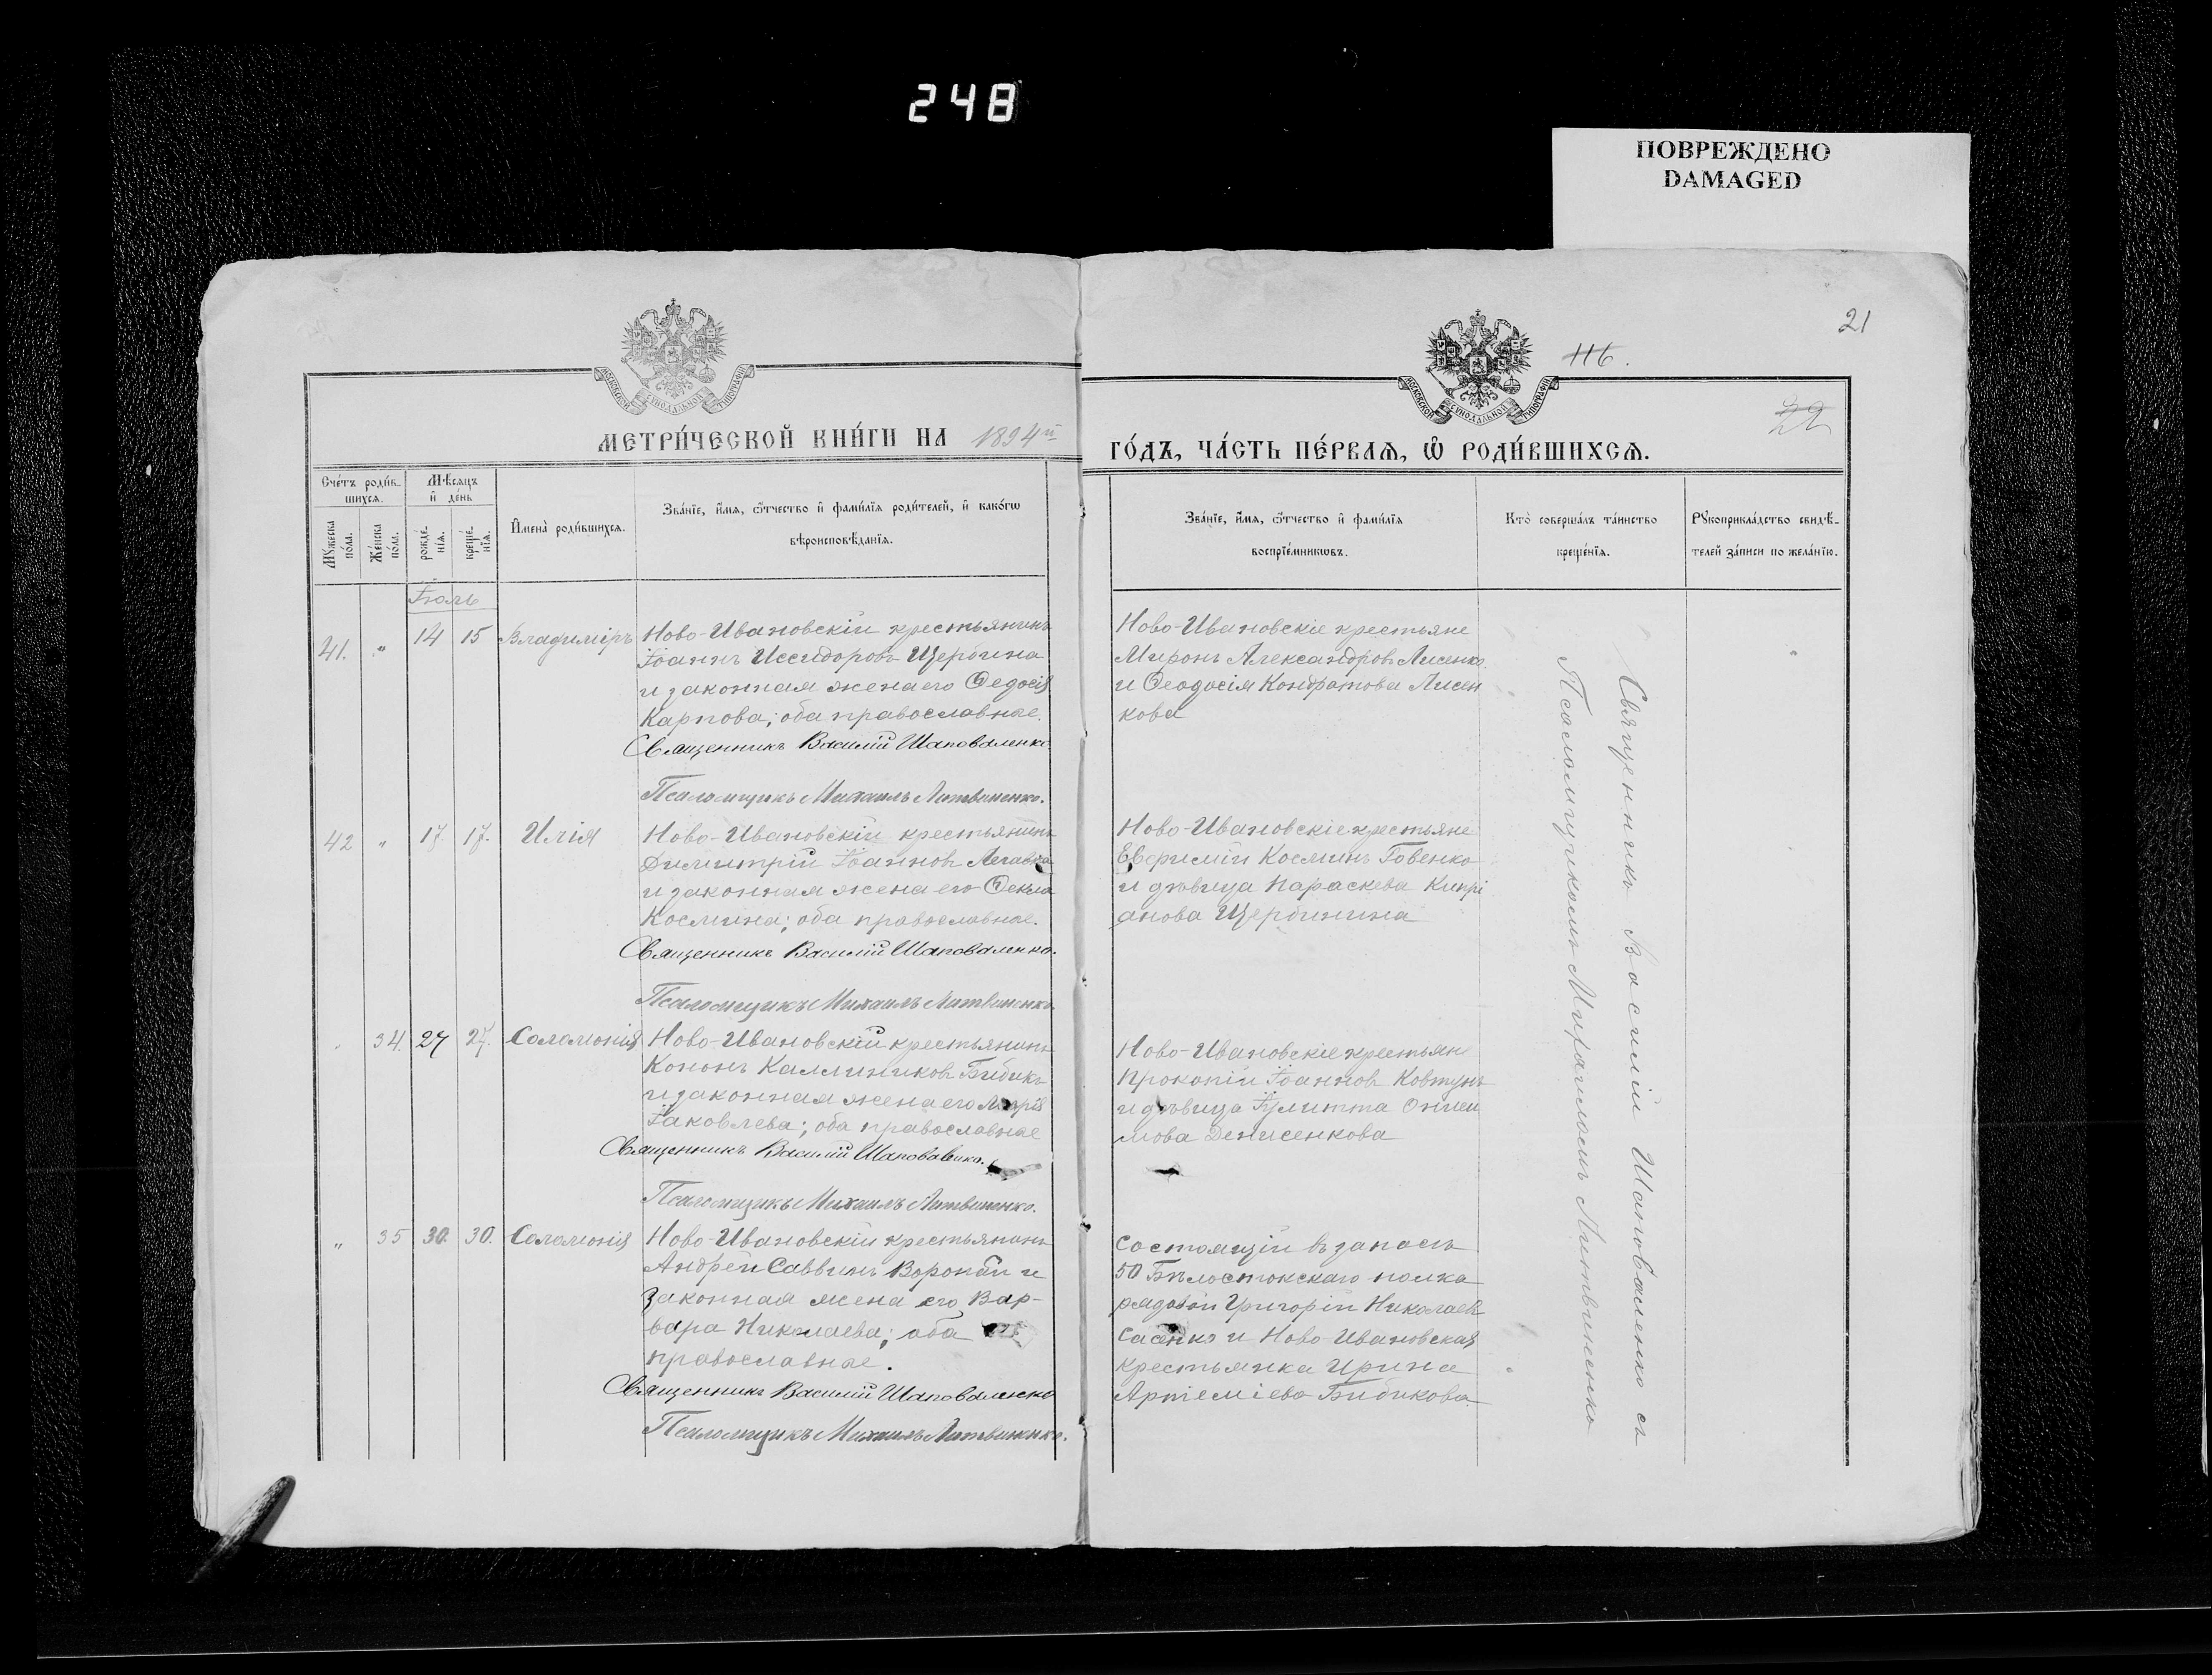 248
ПОВРЕЖДЕНО
DAMAGED
21
116.
22
МОСКОВСКОЙ СѴНОДАЛЬНОЙ ТИПОГРАФІИ
МОСКОВСКОЙ СѴНОДАЛЬНОЙ ТИПОГРАФІИ
МЕТРИ́ЧЕСКОЙ КНИ́ГИ НА 1894й
ГО́ДЪ, ЧА́СТЬ ПЕ́РВАѦ, Ѡ҆ РОДИ́ВШИХСѦ.
Сче́тъ роди́в-
шихсѧ.
Мѣ́сѧцъ
и҆ де́нь
Мꙋ́жеска
по́ла.
Же́нска
по́ла.
рожде́-
нїѧ.
креще́-
нїѧ.
И҆мена̀ роди́вшихсѧ.
Зва́нїе, и҆́мѧ, ѻ҆́тчество и҆ фами́лїѧ роди́телей, и҆ како́гѡ
вѣроисповѣ́данїѧ.
Зва́нїе, и҆́мѧ, ѻ҆́тчество и҆ фами́лїѧ
воспрїе́мникѡвъ.
Кто̀ соверша́лъ та́инство
креще́нїѧ.
Рꙋкоприкла́дство свидѣ́-
телей за́писи по жела́нїю.
Іюль
41. " 14 15 Владиміръ
Ново-Ивановскій крестьянинъ
Іоаннъ Иссидоровъ Щербина
и законная жена его Ѳедосія
Карпова; оба православные.
Священникъ Василій Шаповаленко
Псаломщикъ Михаилъ Литвиненко.
Ново-Ивановскіе крестьяне
Миронъ Александровъ Лисенко
и Ѳеодосія Кондратова Лисен
кова
42 " 17. 17. Илія
Ново-Ивановскій крестьянинъ
Димитрій Іоанновъ
и законная жена его Ѳекла
Космина; оба православные.
Священникъ Василій Шаповаленко.
Псаломщикъ Михаилъ Литвиненко.
Ново-Ивановскіе крестьяне
Евфимій Косминъ Говенко
и дѣвица Параскева Кипрі
анова Щербинина
" 34. 27 27. Соломонія
Ново-Ивановскій крестьянинъ
Кононъ Каллиниковъ Бибикъ
и законная жена его Марія
Іаковлева; оба православные
Священникъ Василій Шаповаленко.
Псаломщикъ Михаилъ Литвиненко.
Ново-Ивановскіе крестьяне
Прокопій Іоанновъ Ковтунъ
и дѣвица ІулиттаОниси
мова Денисенкова
" 35 30. 30. Соломонія
Ново-Ивановскій крестьянинъ
Андрей Саввинъ Воропай и
законная жена его Вар-
вара Николаева; оба
православные.
Священникъ Василій Шаповаленко
Псаломщикъ Михаилъ Литвиненко.
Состоящій въ запасѣ
50 Бѣлостокскаго полка
рядовой Григорій Николаевъ
Сасенко и Ново-Ивановская
крестьянка Ирина
Артіеміева Бибикова.
Священникъ Василій Шаповаленко съ
Псаломщикомъ Михаиломъ Литвиненко